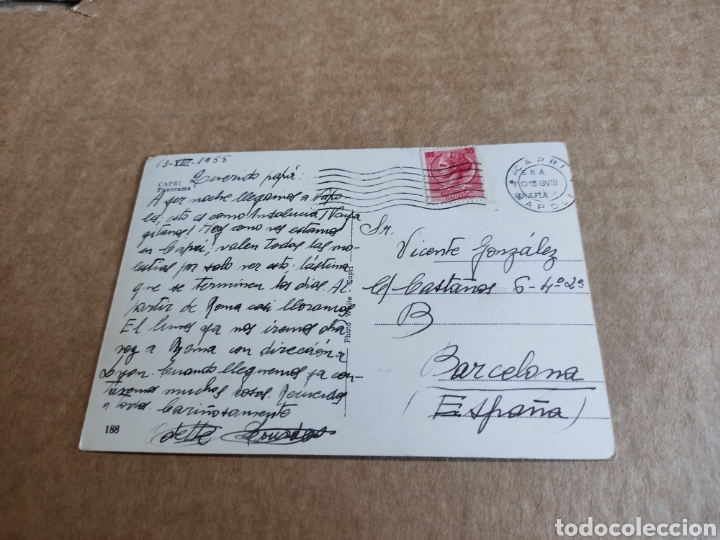 13-VIII-1955
CAPRI
Panorama
Querido papá:
Ayer noche llegamos a Napo
les, esto es como Andalucia! Vaya
gitanos! Hoy como nos estamos
en Capri! valen todas las mo-
lestias por solo ver esto. Lástima
que se terminen los dias. Al
partir de Roma casi lloramos
El lunes ya nos iremos otra
vez a Roma con dirección a
Lyon. Cuando lleguemos ya con-
taremos muchas cosas. Recuerdos
a todos cariñosamente
188
CAPRI
NAPOLI
Sr.
Vicente González
c/ Castaños 6-4º2ª
B
Barcelona
(España)
todocoleccion
todocoleccion.net